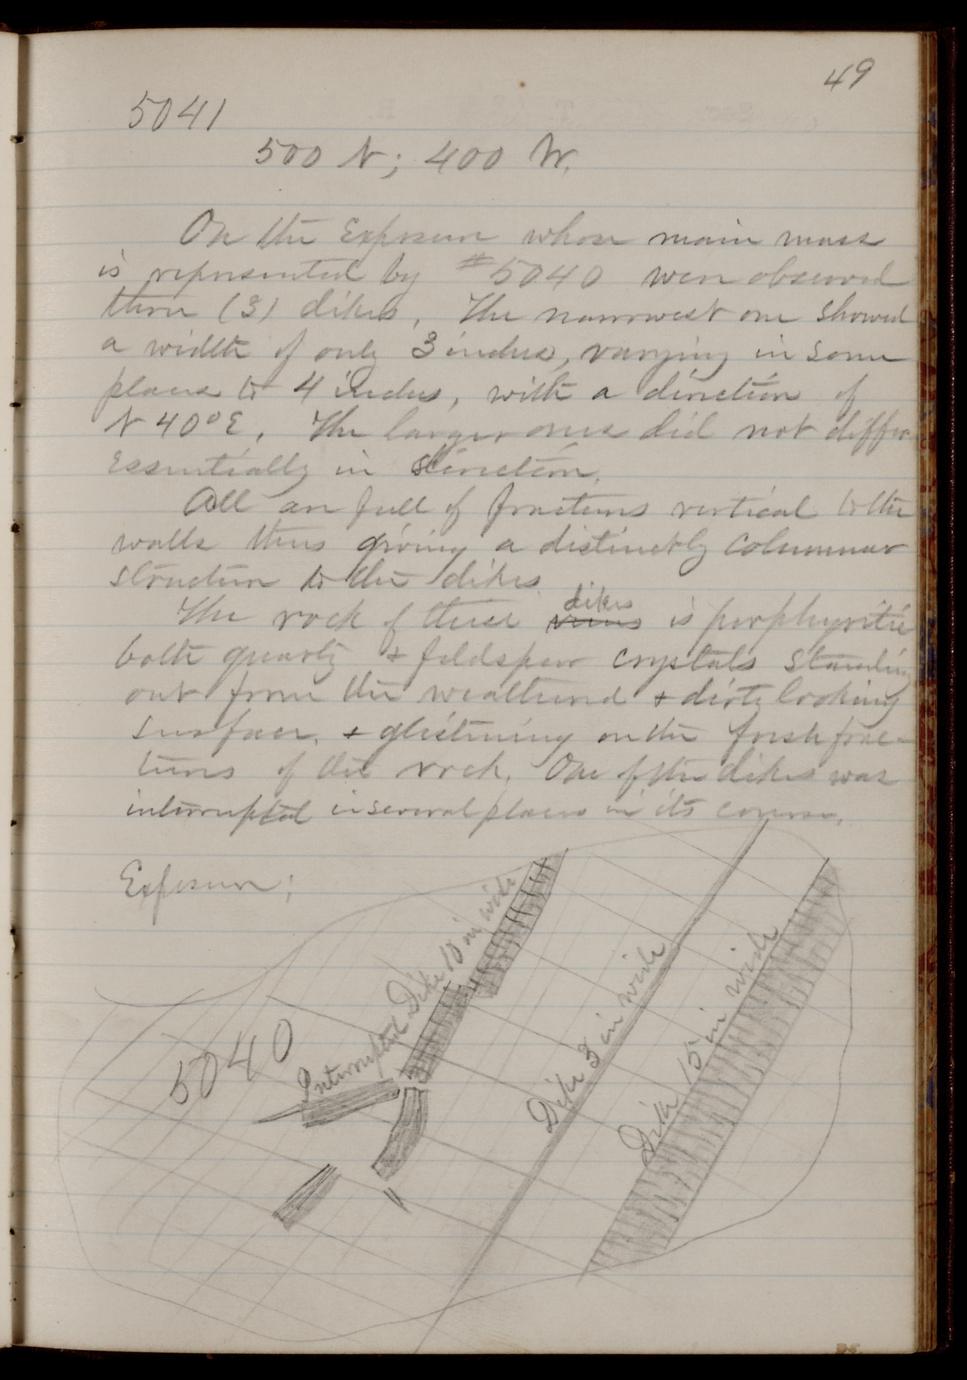 49
5041
500 N; 400 W.
On the Exposure whose main mass
is represented by #5040 were observed
three (3) dikes. The narrowest one showed
a width of only 3 inches, varying in some
places to 4 inches, with a direction of
N 40° E. The larger ones did not differ
essentially in direction.
All are full of fractures vertical to the
walls thus giving a distinctly columnar
structure to the dikes
dikes
The rock of these veins is porphyritic
both quartz & feldspar crystals standing
out from the weathered & dirty looking
surface, & glistening on the fresh frac-
tures of the rock. One of the dikes was
interrupted in several places in its course.
Exposure:
5040
Interrupted Dike 10 in wide
Dike 3 in wide
Dike 15 in wide